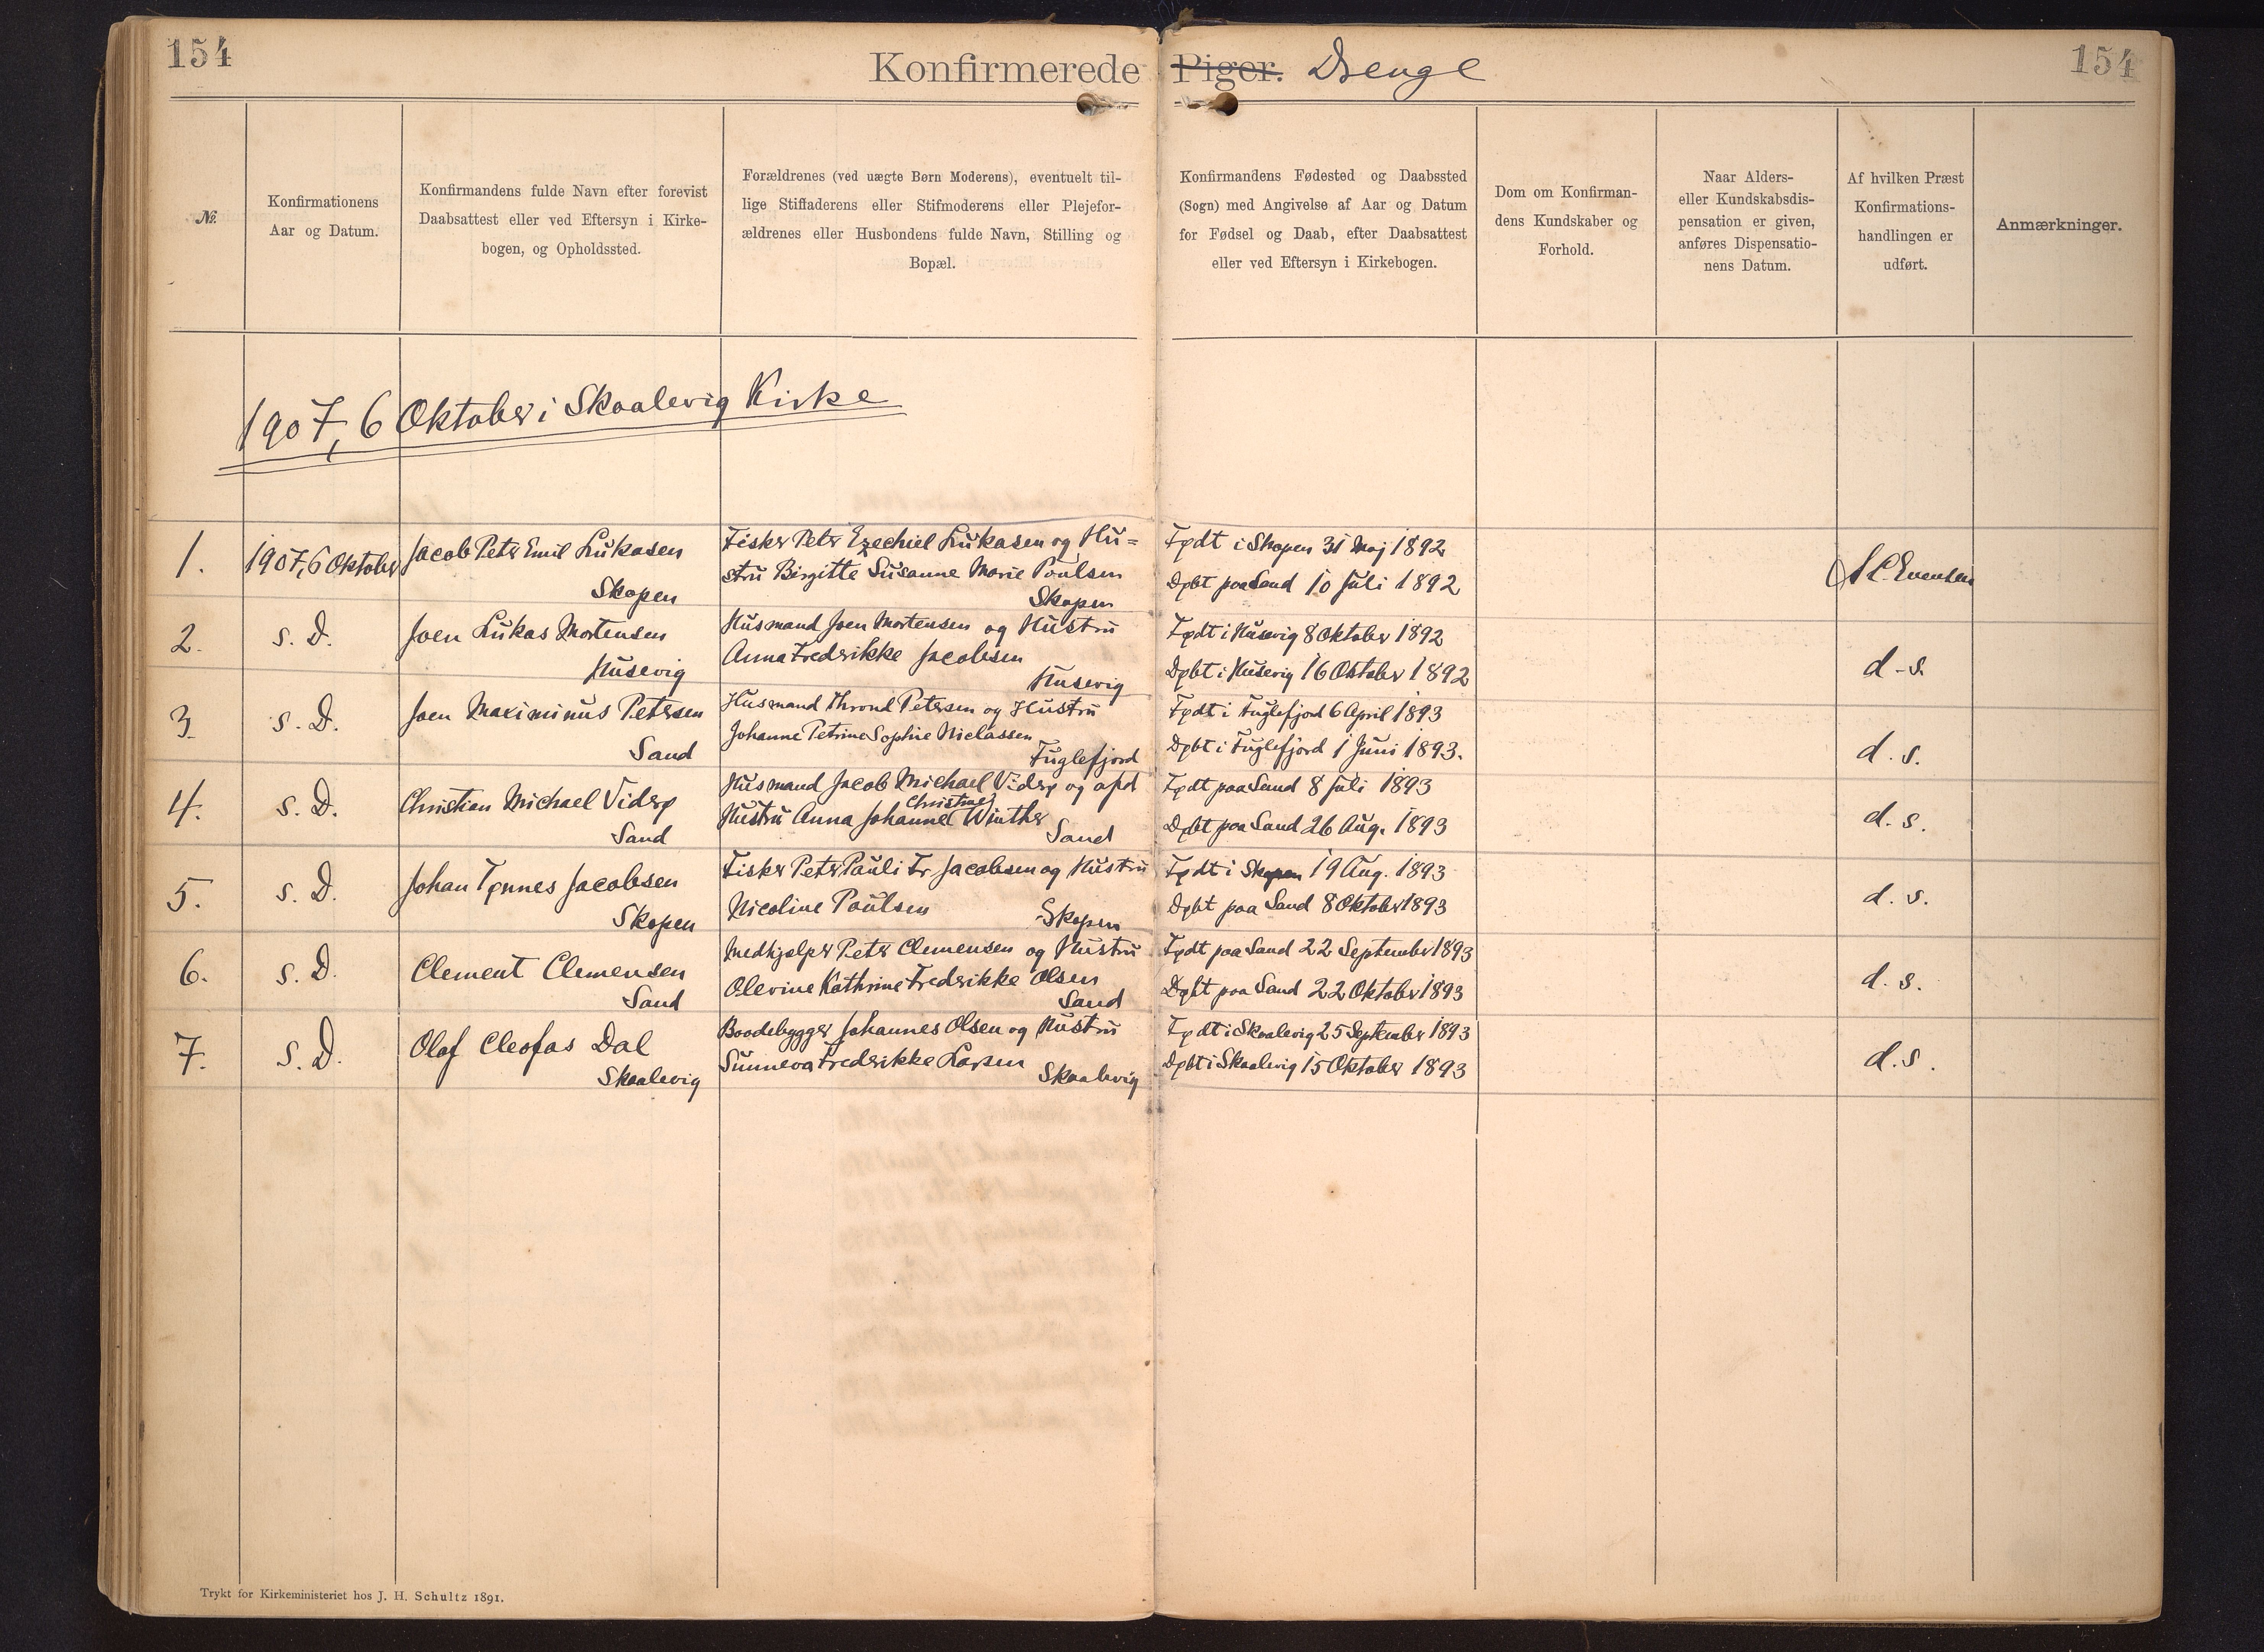 154
Konfirmerede Piger. Drenge
154
№.
Konfirmationens
Aar og Datum.
Konfirmandens fulde Navn efter forevist
Daabsattest eller ved Eftersyn i Kirke-
bogen, og Opholdssted.
Forældrenes (ved uægte Børn Moderens), eventuelt til-
lige Stiffaderens eller Stifmoderens eller Plejefor-
ældrenes eller Husbondens fulde Navn, Stilling og
Bopæl.
Konfirmandens Fødested og Daabssted
(Sogn) med Angivelse af Aar og Datum
for Fødsel og Daab, efter Daabsattest
eller ved Eftersyn i Kirkebogen.
Dom om Konfirman-
dens Kundskaber og
Forhold.
Naar Alders-
eller Kundskabsdis-
pensation er given,
anføres Dispensatio-
nens Datum.
Af hvilken Præst
Konfirmations-
handlingen er
udført.
Anmærkninger.
1907, 6 Oktober i Skaalevig Kirke
1.
1907, 6 Oktober
Jacob Peter Emil Lukasen
Skopen
Fisker Peter Ezechiel Lukasen og Hu=
stru Birgitte Susanne Marie Poulsen
Skopen
Født i Skopen 31 Maj 1892
Døbt paa Sand 10 Juli 1892
Evensen
2.
s. D.
Joen Lukas Mortensen
Husevig
Husmand Joen Mortensen og Hustru
Anna Frederikke Jacobsen
Husevig
Født i Husevig 8 Oktober 1892
Døbt i Husevig 16 Oktober 1892
d. s.
3
s. D.
Joen Maximinus Petersen
Sand
Husmand Thrond Petersen og Hustru
Johanne Petrine Sophie Niclassen
Fuglefjord
Født i Fuglefjord 6 April 1893
Døbt i Fuglefjord 1 Juni 1893.
d. s.
4.
s. D.
Christian Michael Viderø
Sand
Husmand Jacob Michael Viderø og afd
Hustru Anna Johanne Christine Winther
Sand
Født paa Sand 8 Juli 1893
Døbt paa Sand 26 Aug. 1893
d. s.
5.
s. D.
Johan Tønnes Jacobsen
Skopen
Fisker Peter Pauli Fr Jacobsen og Hustru
Nicoline Poulsen
Skopen
Født i Skopen 19 Aug. 1893
Døbt paa Sand 8 Oktober 1893
d. s.
6.
s. D.
Clement Clemensen
Sand
Medhjelper Peter Clemensen og Hustru
Olevine Kathrine Frederikke Olsen
Sand
Født paa Sand 22 September 1893
Døbt paa Sand 22 Oktober 1893
d. s.
7.
s. D.
Olaf Cleofas Dal
Skaalevig
Baadebygger Johannes Olsen og Hustru
Sunneva Frederikke Larsen
Skaalevig
Født i Skaalevig 25 September 1893
Døbt i Skaalevig 15 Oktober 1893
d. s.
Trykt for Kirkeministeriet hos J. H. Schultz 1891.